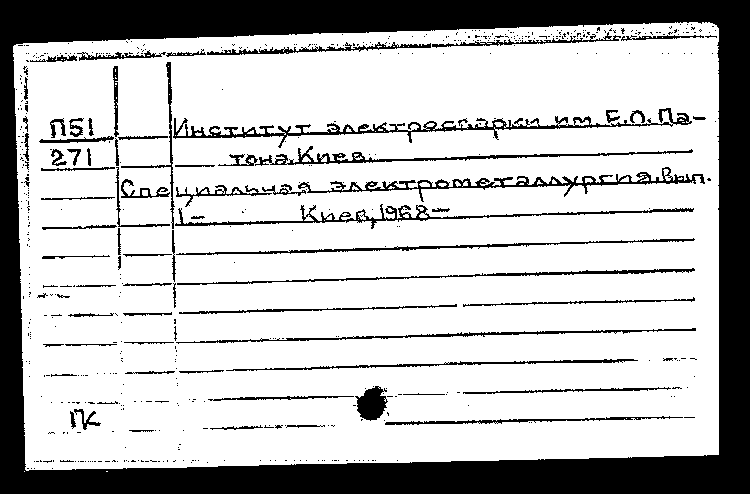 П51 Институт электросварки им. Е.О. Па-
271 тона. Киев.
Специальная электрометаллургия. Вып.
1- Киев, 1968-
ПК